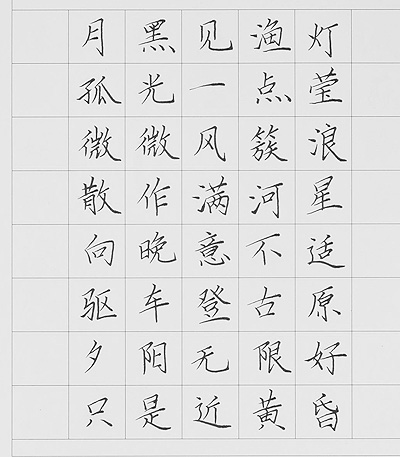 月黑见渔灯
孤光一点莹
微微风簇浪
散作满河星
向晚意不适
驱车登古原
夕阳无限好
只是近黄昏